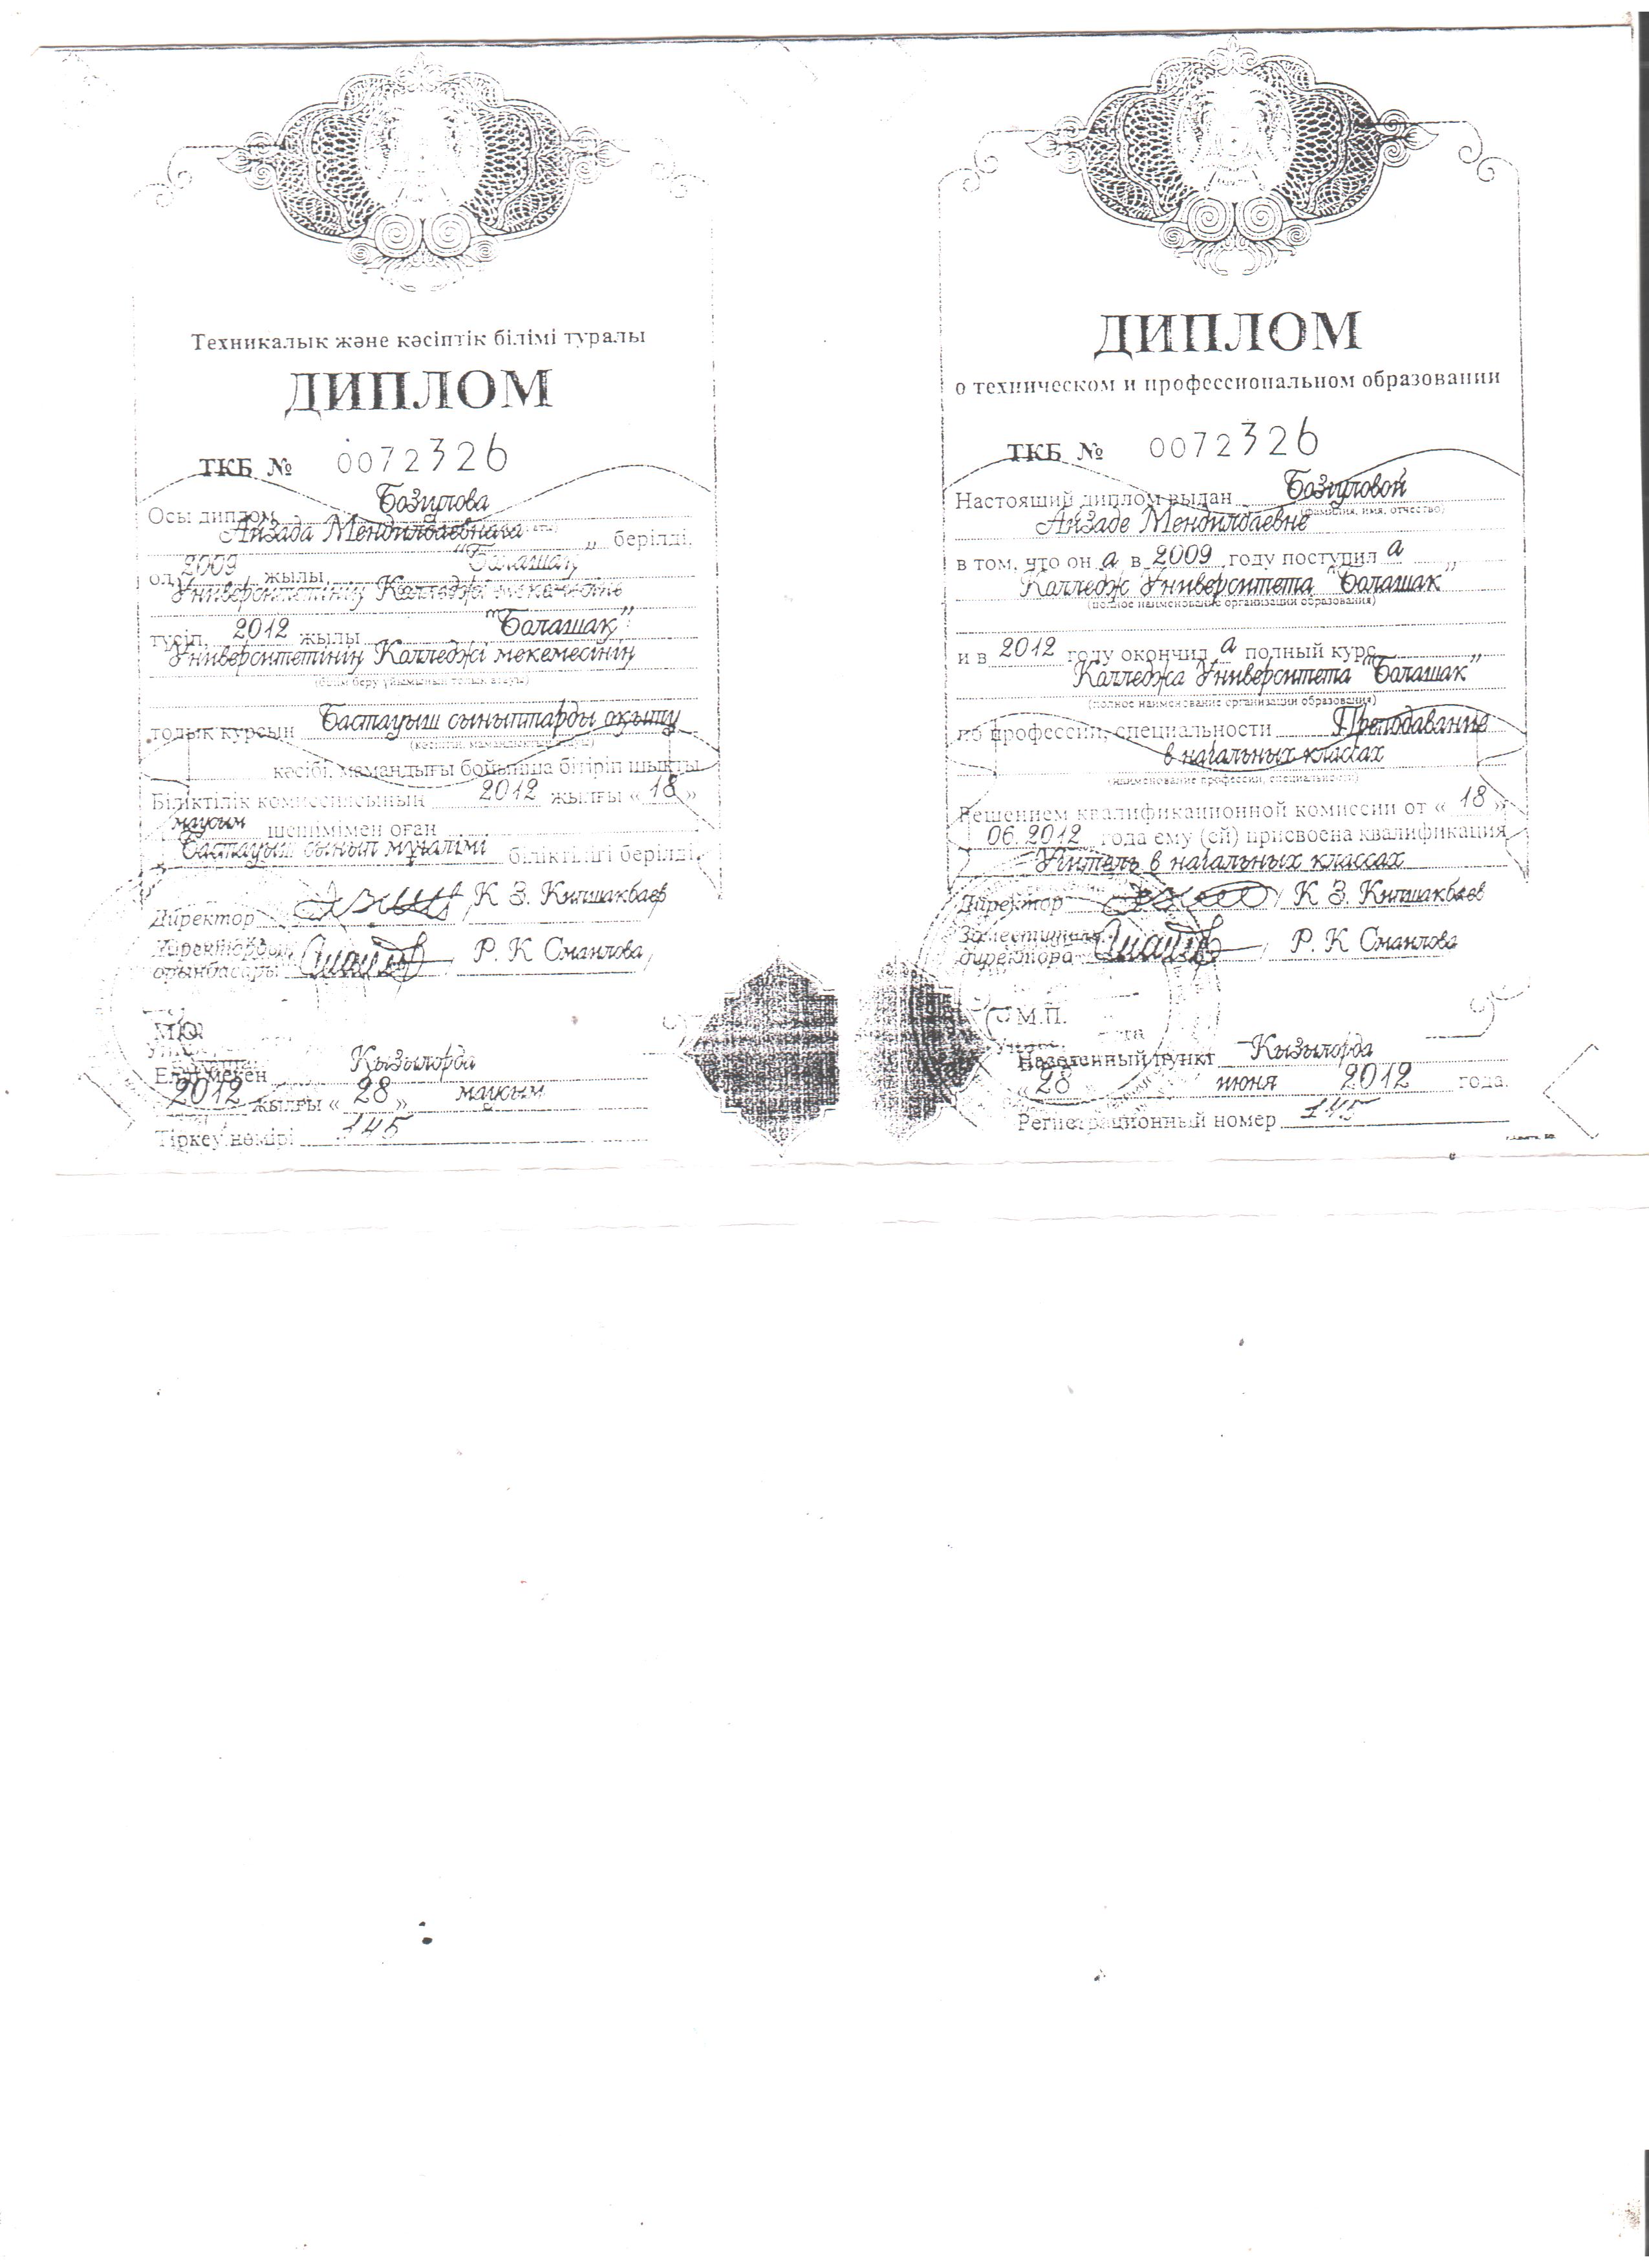 Техникалық және кәсіптік білімі туралы
ДИПЛОМ
ТКБ № 0072326
Осы диплом
Айзада Мендилбаевнаға берілді.
ол 2009 жылы "Болашақ"
Университетінің Колледжі мекемесіне
түсіп, 2012 жылы "Болашақ"
Университетінің Колледжі мекемесінің
(білім беру ұйымының толық атауы)
толық курсын Бастауыш сыныптарды оқыту
кәсібі, мамандығы бойынша бітіріп шықты
Біліктілік комиссиясының 2012 жылғы « 18 »
маусым шешімімен оған
Бастауыш сынып мұғалімі біліктілігі берілді.
Директор К З. Кыпшакбаев
Директордың орынбасары Р. К Сманлова
Елді мекен Кызылорда
2012 жылғы « 28 » маусым
Тіркеу нөмірі 145
ДИПЛОМ
о техническом и профессиональном образовании
ТКБ № 0072326
Настоящий диплом выдан
(фамилия, имя, отчество)
Айзаде Мендилбаевне
в том, что он а в 2009 году поступил а
Колледж Университета "Болашак"
(полное наименование организации образования)
и в 2012 году окончил а полный курс
Колледжа Университета "Болашак"
(полное наименование организации образования)
по профессии, специальности Преподавание
в начальных классах
(наименование профессии, специальности)
Решением квалификационной комиссии от « 18 »
06. 2012 года ему (ей) присвоена квалификация
Учитель в начальных классах
Директор К З. Кыпшакбаев
Заместитель директора Р. К Сманлова
М.П.
Населенный пункт Кызылорда
« 28 июня 2012 года.
Регистрационный номер 145